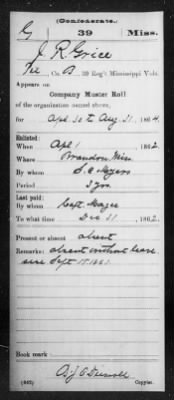 (Confederate.)
G 39 Miss.
J. R. Grice
Pvt, Co. B, 39 Reg't Mississippi Vols.
Appears on
Company Muster Roll
of the organization named above,
for Apl 30 to Aug 31, 1864.
Enlisted:
When Apl 1, 1862.
Where Brandon Miss.
By whom
Period 3 yrs.
Last paid:
By whom Capt. Magee
To what time Dec 31, 1862.
Present or absent absent
Remarks: absent without leave
since Sept 1st 1863.
Book mark:
(642) Copyist.